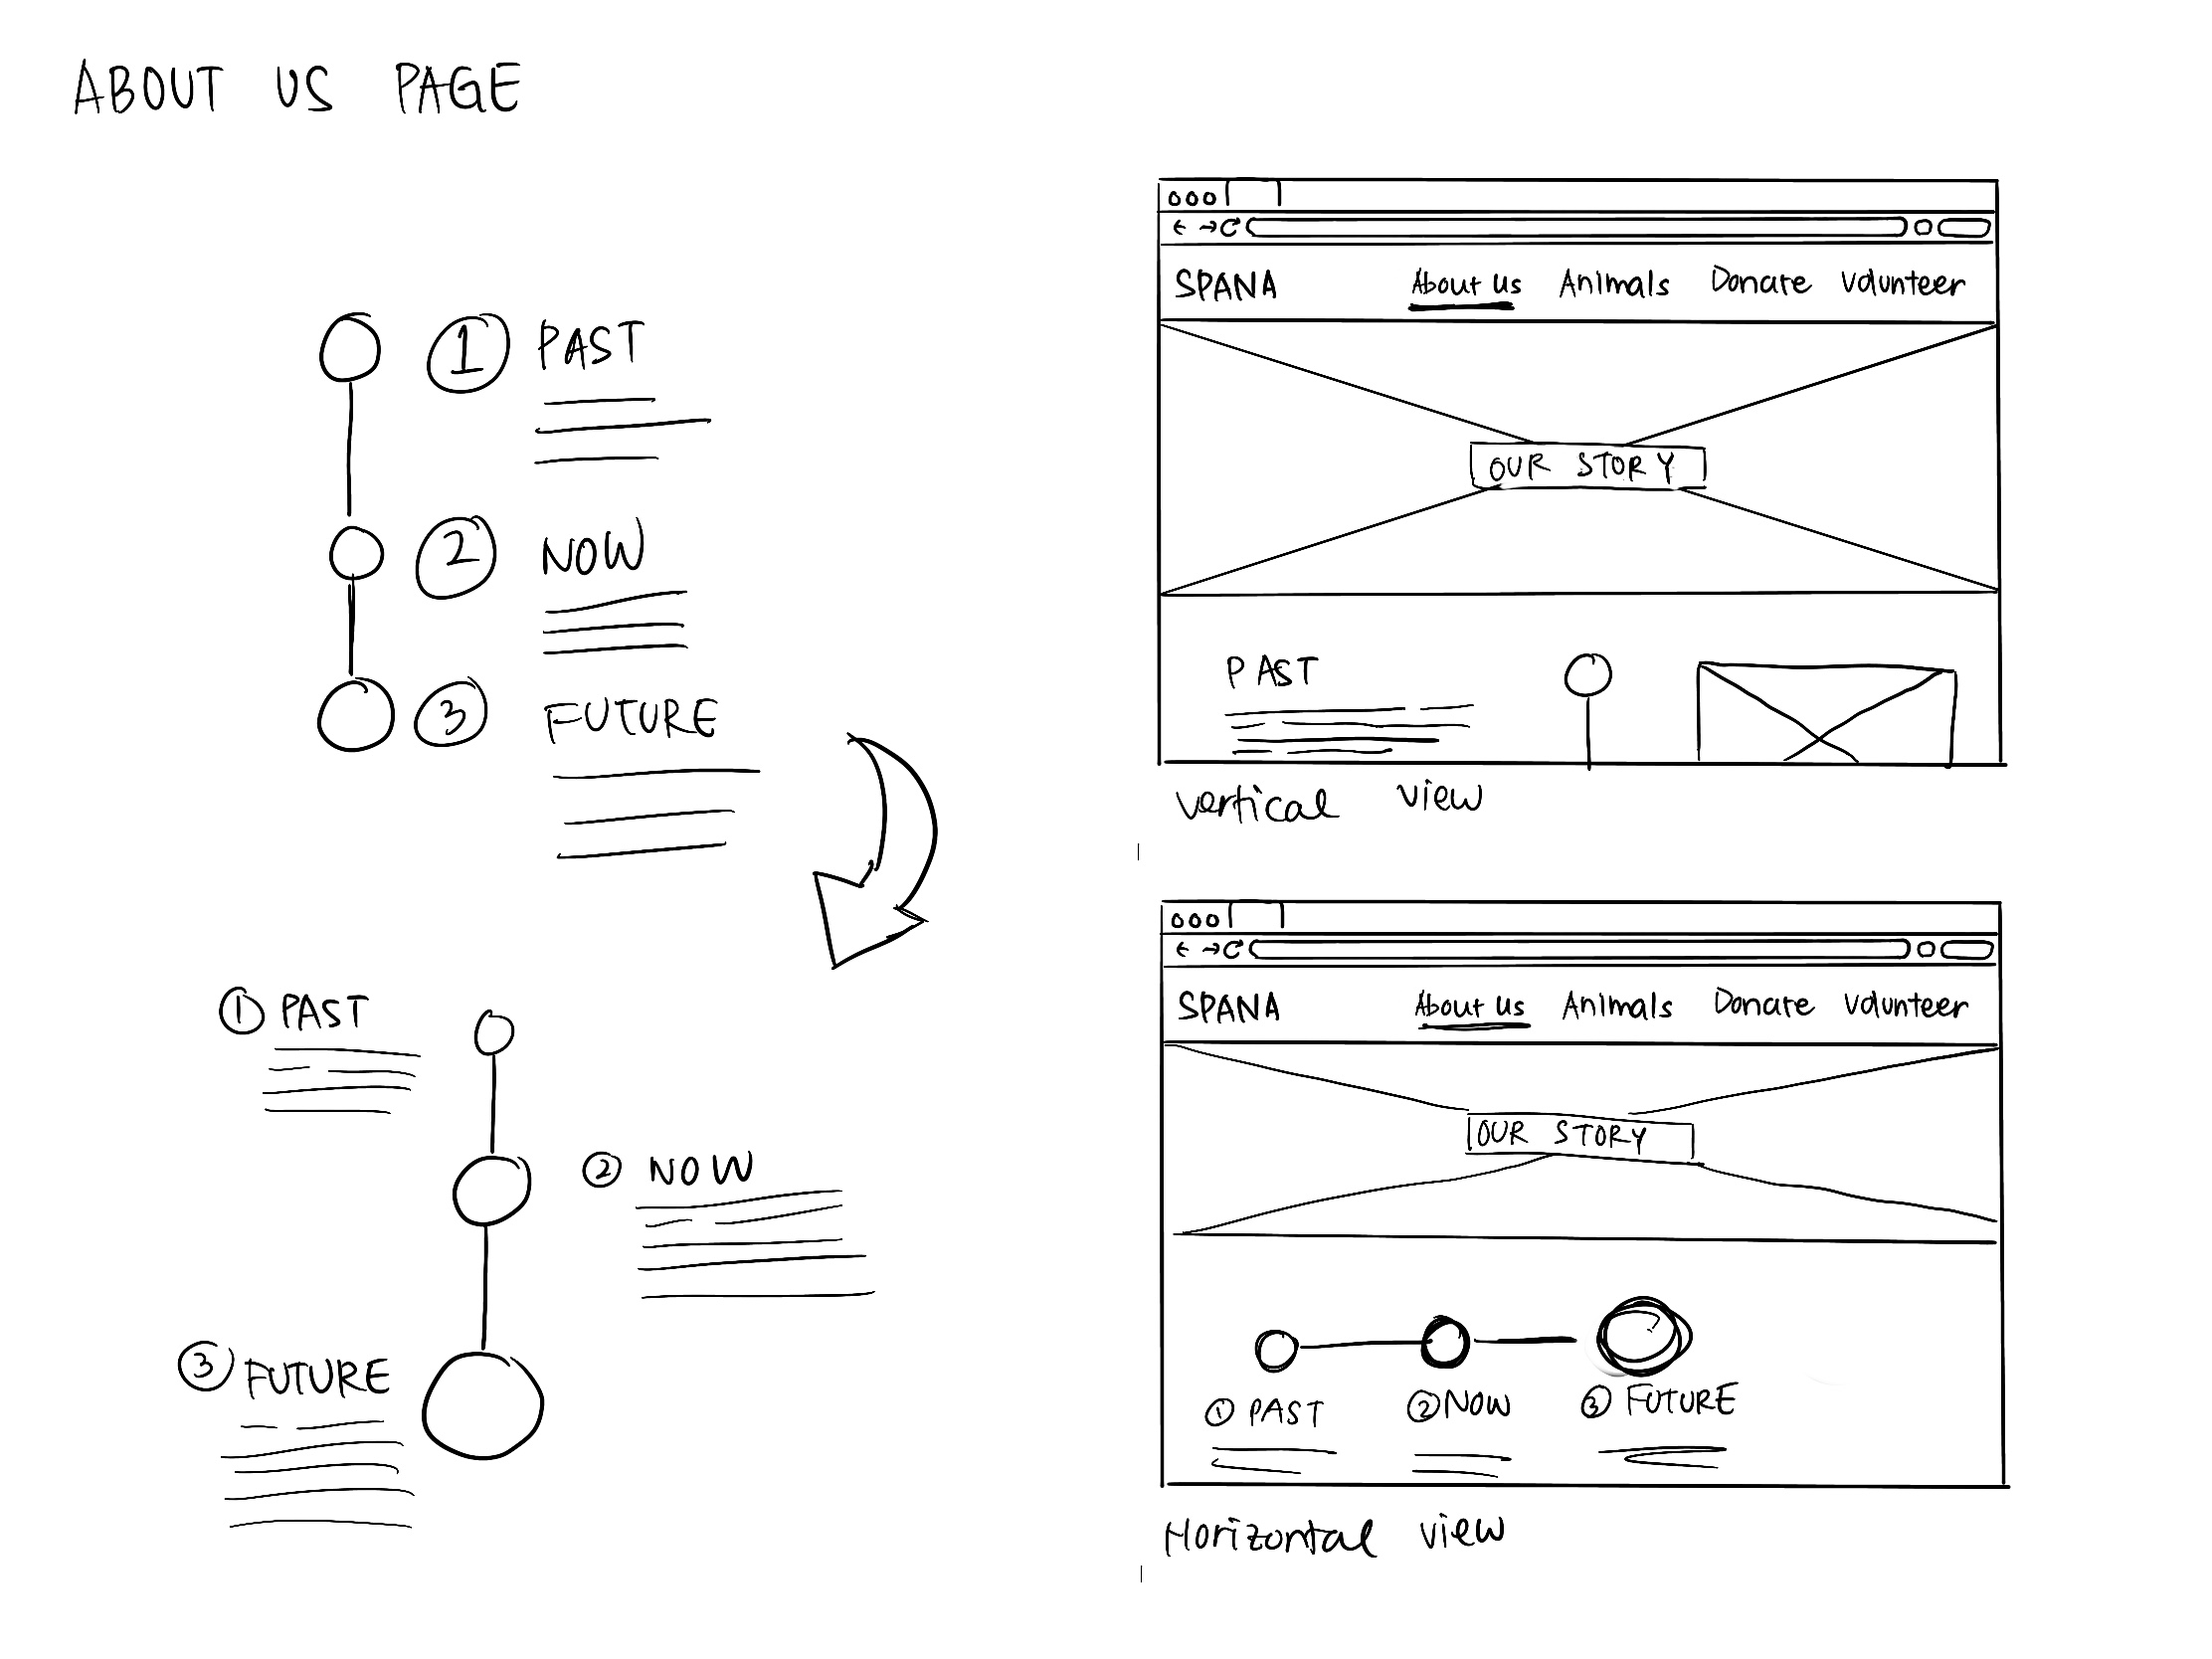 ABOUT US PAGE
1 PAST
2 NOW
3 FUTURE
1 PAST
2 NOW
3 FUTURE
SPANA About Us Animals Donate Volunteer
OUR STORY
PAST
vertical view
SPANA About Us Animals Donate Volunteer
OUR STORY
1 PAST 2 NOW 3 FUTURE
Horizontal view